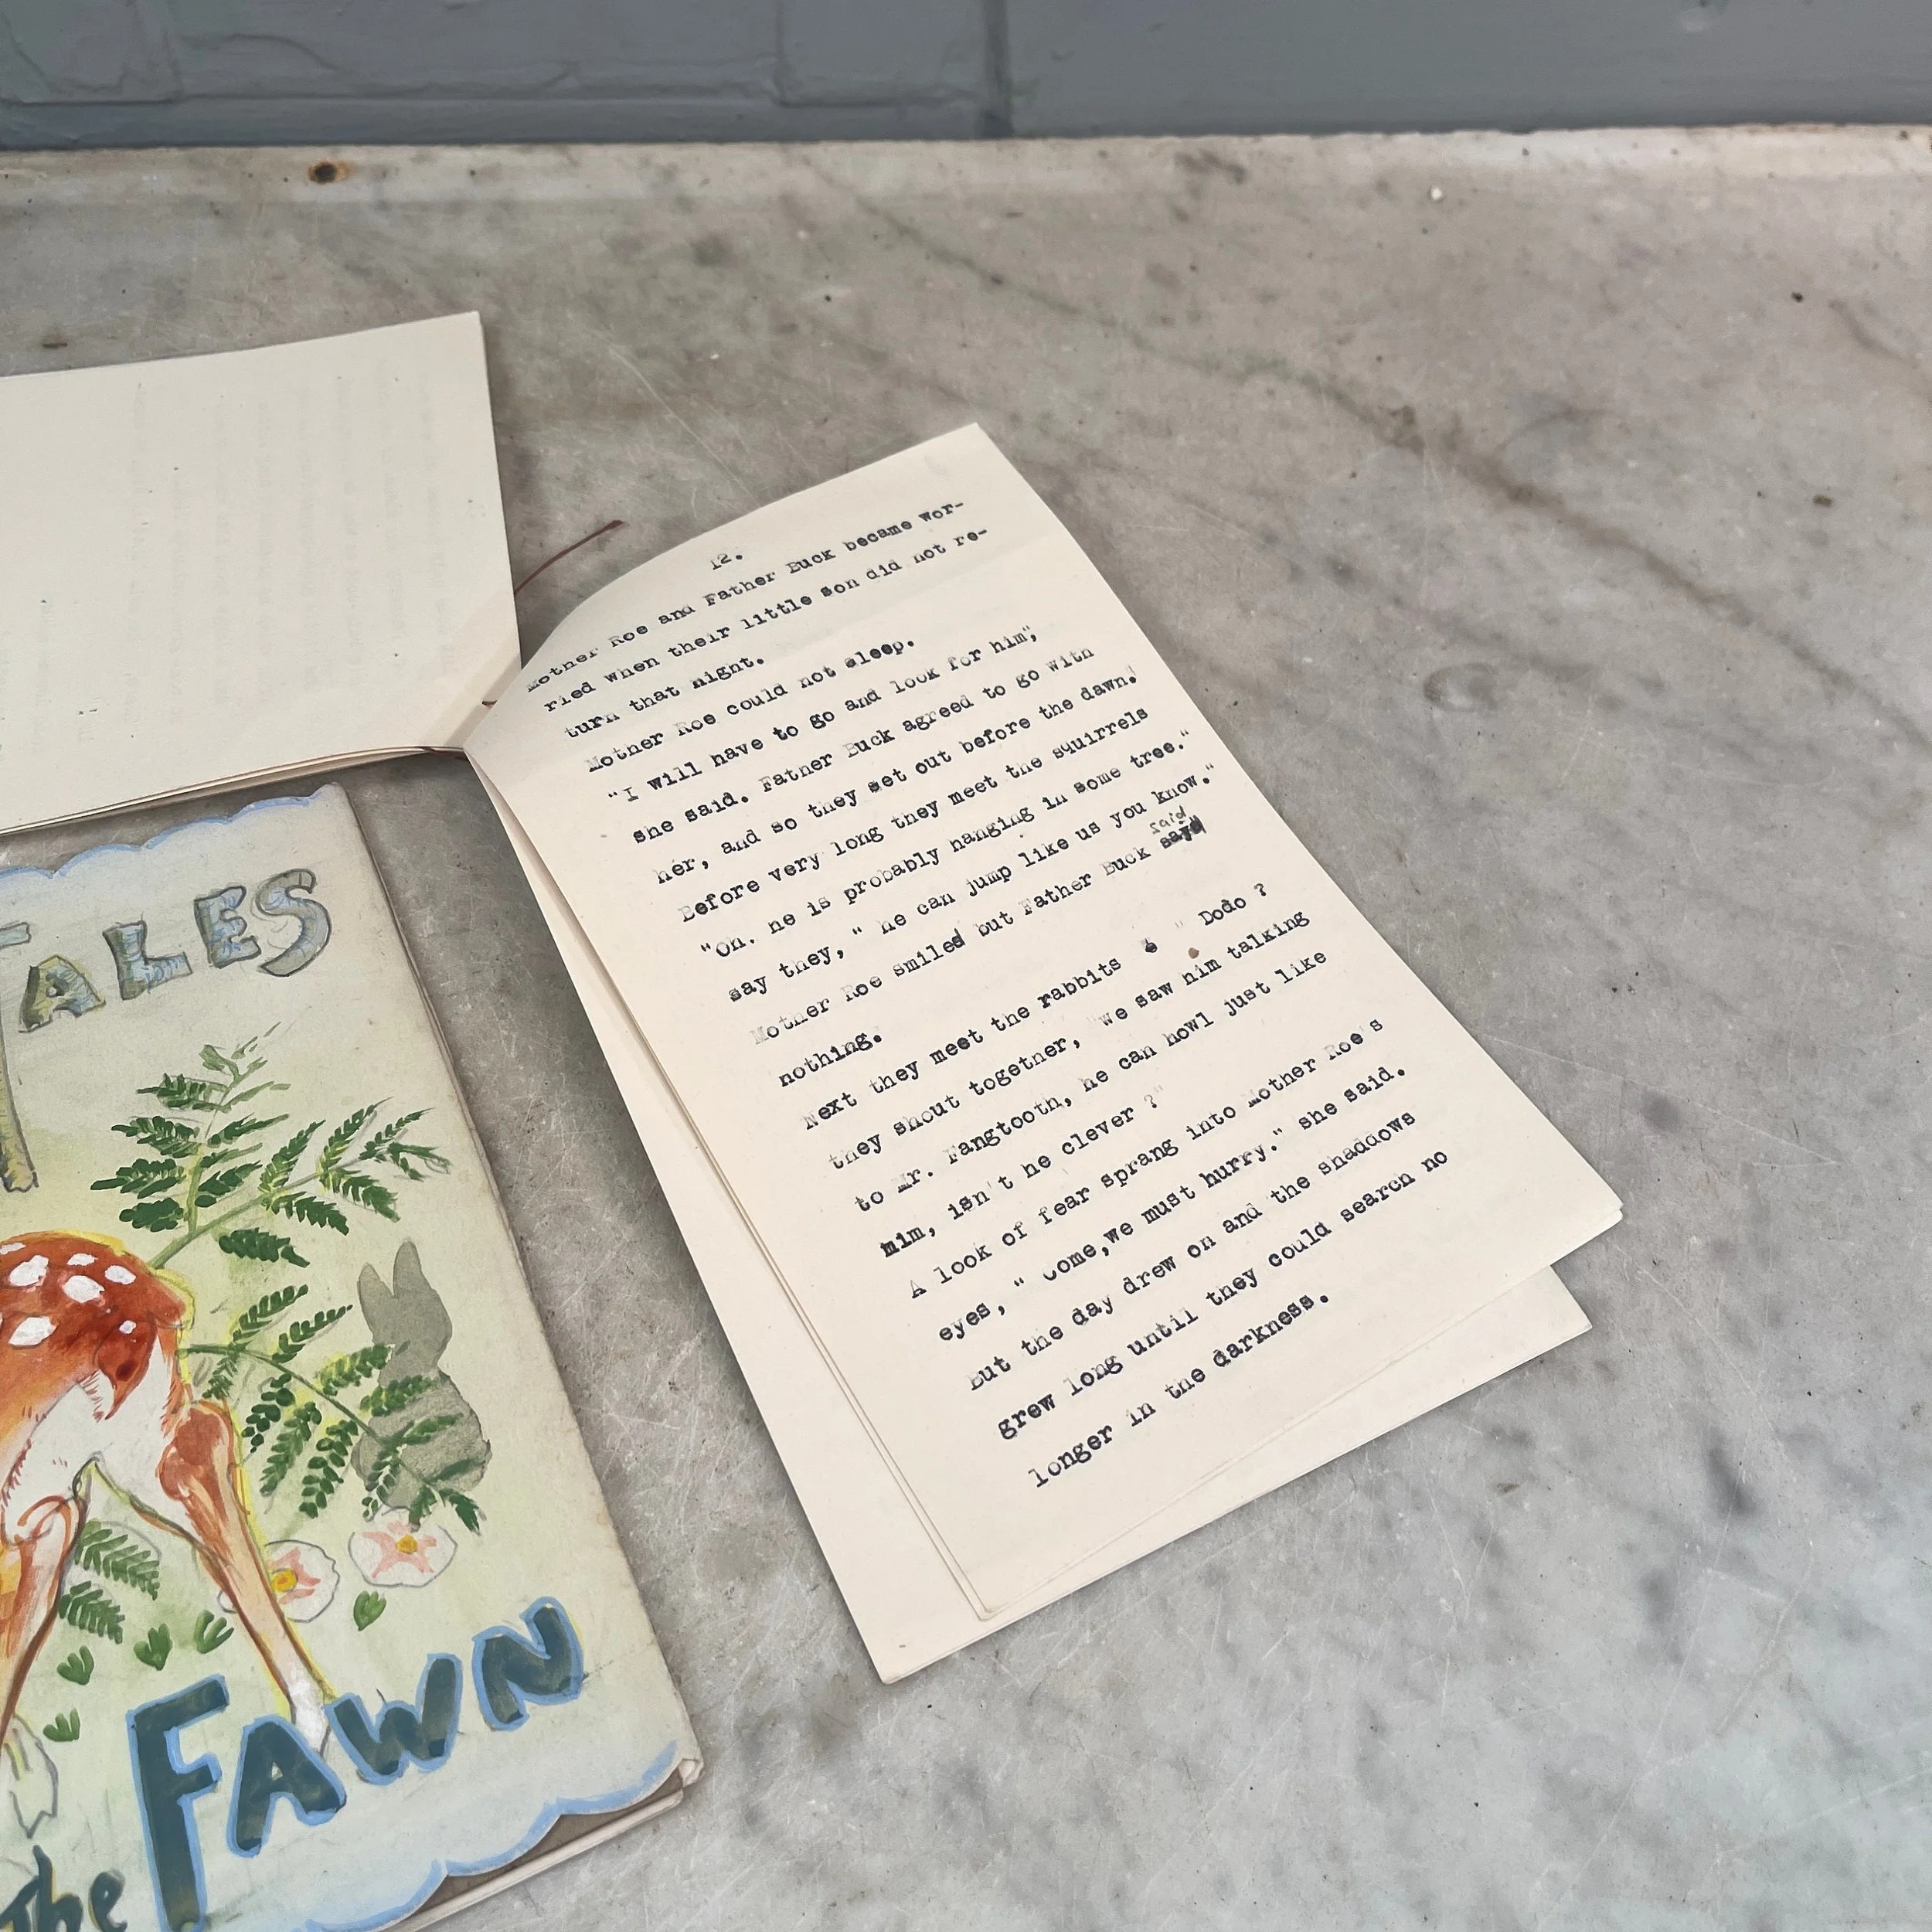 TALES
the FAWN
12.
Mother Roe and Father Buck became wor-
ried when their little son did not re-
turn that night.
Mother Roe could not sleep.
"I will have to go and look for him",
she said. Father Buck agreed to go with
her, and so they set out before the dawn.
Before very long they meet the squirrels
"Oh. he is probably hanging in some tree."
say they, " he can jump like us you know."
said
Mother Roe smiled but Father Buck sayd
nothing.
Next they meet the rabbits & " Dodo ?
they shout together, "we saw him talking
to Mr. Fangtooth, he can howl just like
him, isn't he clever ?"
A look of fear sprang into Mother Roe's
eyes, " Come,we must hurry." she said.
But the day drew on and the shaddows
grew long until they could search no
longer in the darkness.